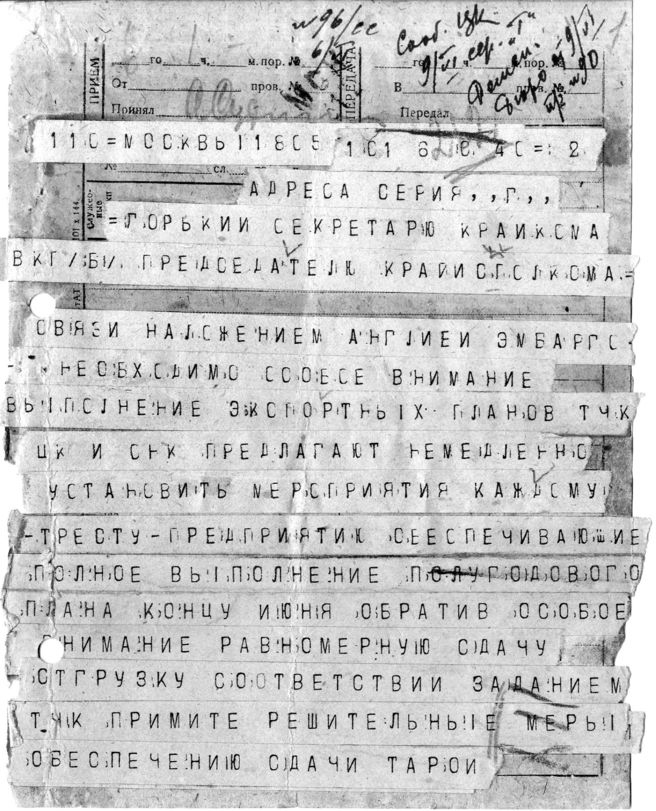 №96/сс
Сооб. Цк
9/VI сер. "Г"
ПРИЕМ
го ч. м. пор. №
ПЕРЕДАЧА
го
От пров. №
В пров. №
Принял
Передал
110=МОСКВЫ11805 101 6 8 40=: 2
№ сл.
АДРЕСА СЕРИЯ,,Г,,
служеб-
ные
=ГОРЬКИЙ СЕКРЕТАРЮ КРАЙКОМА
ВКП/Б/ ПРЕДСЕДАТЕЛЮ КРАЙИСПОЛКОМА=
СВЯЗИ НАЛОЖЕНИЕМ АНГЛИЕЙ ЭМБАРГО-
НЕОБХОДИМО ОСОБОЕ ВНИМАНИЕ
ВЫПОЛНЕНИЕ ЭКСПОРТНЫХ ПЛАНОВ ТЧК
ЦК И СНК ПРЕДЛАГАЮТ НЕМЕДЛЕННО
УСТАНОВИТЬ МЕРОПРИЯТИЯ КАЖДОМУ
-ТРЕСТУ-ПРЕДПРИЯТИЮ ОБЕСПЕЧИВАЮЩИЕ
ПОЛНОЕ ВЫПОЛНЕНИЕ ПОЛУГОДОВОГО
ПЛАНА КОНЦУ ИЮНЯ ОБРАТИВ ОСОБОЕ
ВНИМАНИЕ РАВНОМЕРНУЮ СДАЧУ
ОТГРУЗКУ СООТВЕТСТВИИ ЗАДАНИЕМ
ТЧК ПРИМИТЕ РЕШИТЕЛЬНЫЕ МЕРЫ
ОБЕСПЕЧЕНИЮ СДАЧИ ТАРОЙ